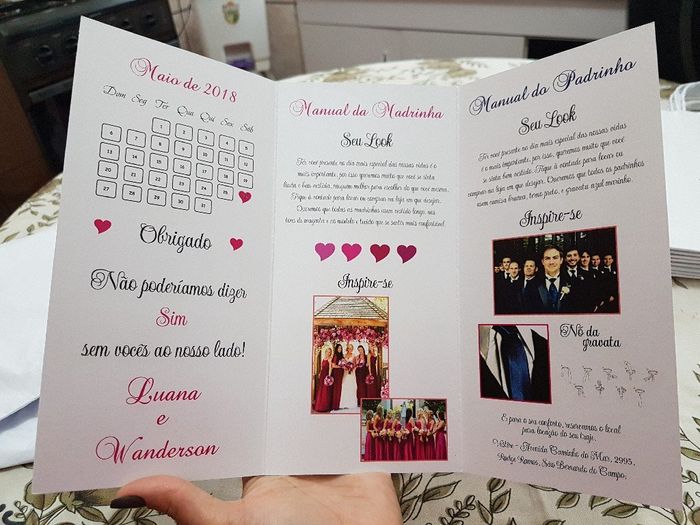 Maio de 2018
Dom Seg Ter Qua Qui Sex Sab
1 2 3 4 5
6 7 8 9 10 11 12
13 14 15 16 17 18 19
20 21 22 23 24 25
27 28 29 30 31
Obrigado
Não poderíamos dizer
Sim
sem vocês ao nosso lado!
Luana
e
Wanderson
Manual da Madrinha
Seu Look
Ter você presente no dia mais especial das nossas vidas é o
mais importante, por isso, queremos muito que você se sinta
linda e bem vestida, ninguém melhor para escolher do que você mesma.
Fique à vontade para locar ou comprar na loja em que desejar.
Queremos que todas as madrinhas usem vestido longo, nos
tons de magenta e no modelo e tecido que se sentir mais confortável.
Inspire-se
Manual do Padrinho
Seu Look
Ter você presente no dia mais especial das nossas vidas
é o mais importante, por isso, queremos muito que você
se sinta bem vestido. Fique à vontade para locar ou
comprar na loja em que desejar. Queremos que todos os padrinhos
usem camisa branca, terno preto, e gravata azul marinho.
Inspire-se
Nó da
gravata
E para o seu conforto, reservamos o local
para locação do seu traje.
Véttre - Avenida Caminho do Mar, 2995,
Rudge Ramos, São Bernardo do Campo,